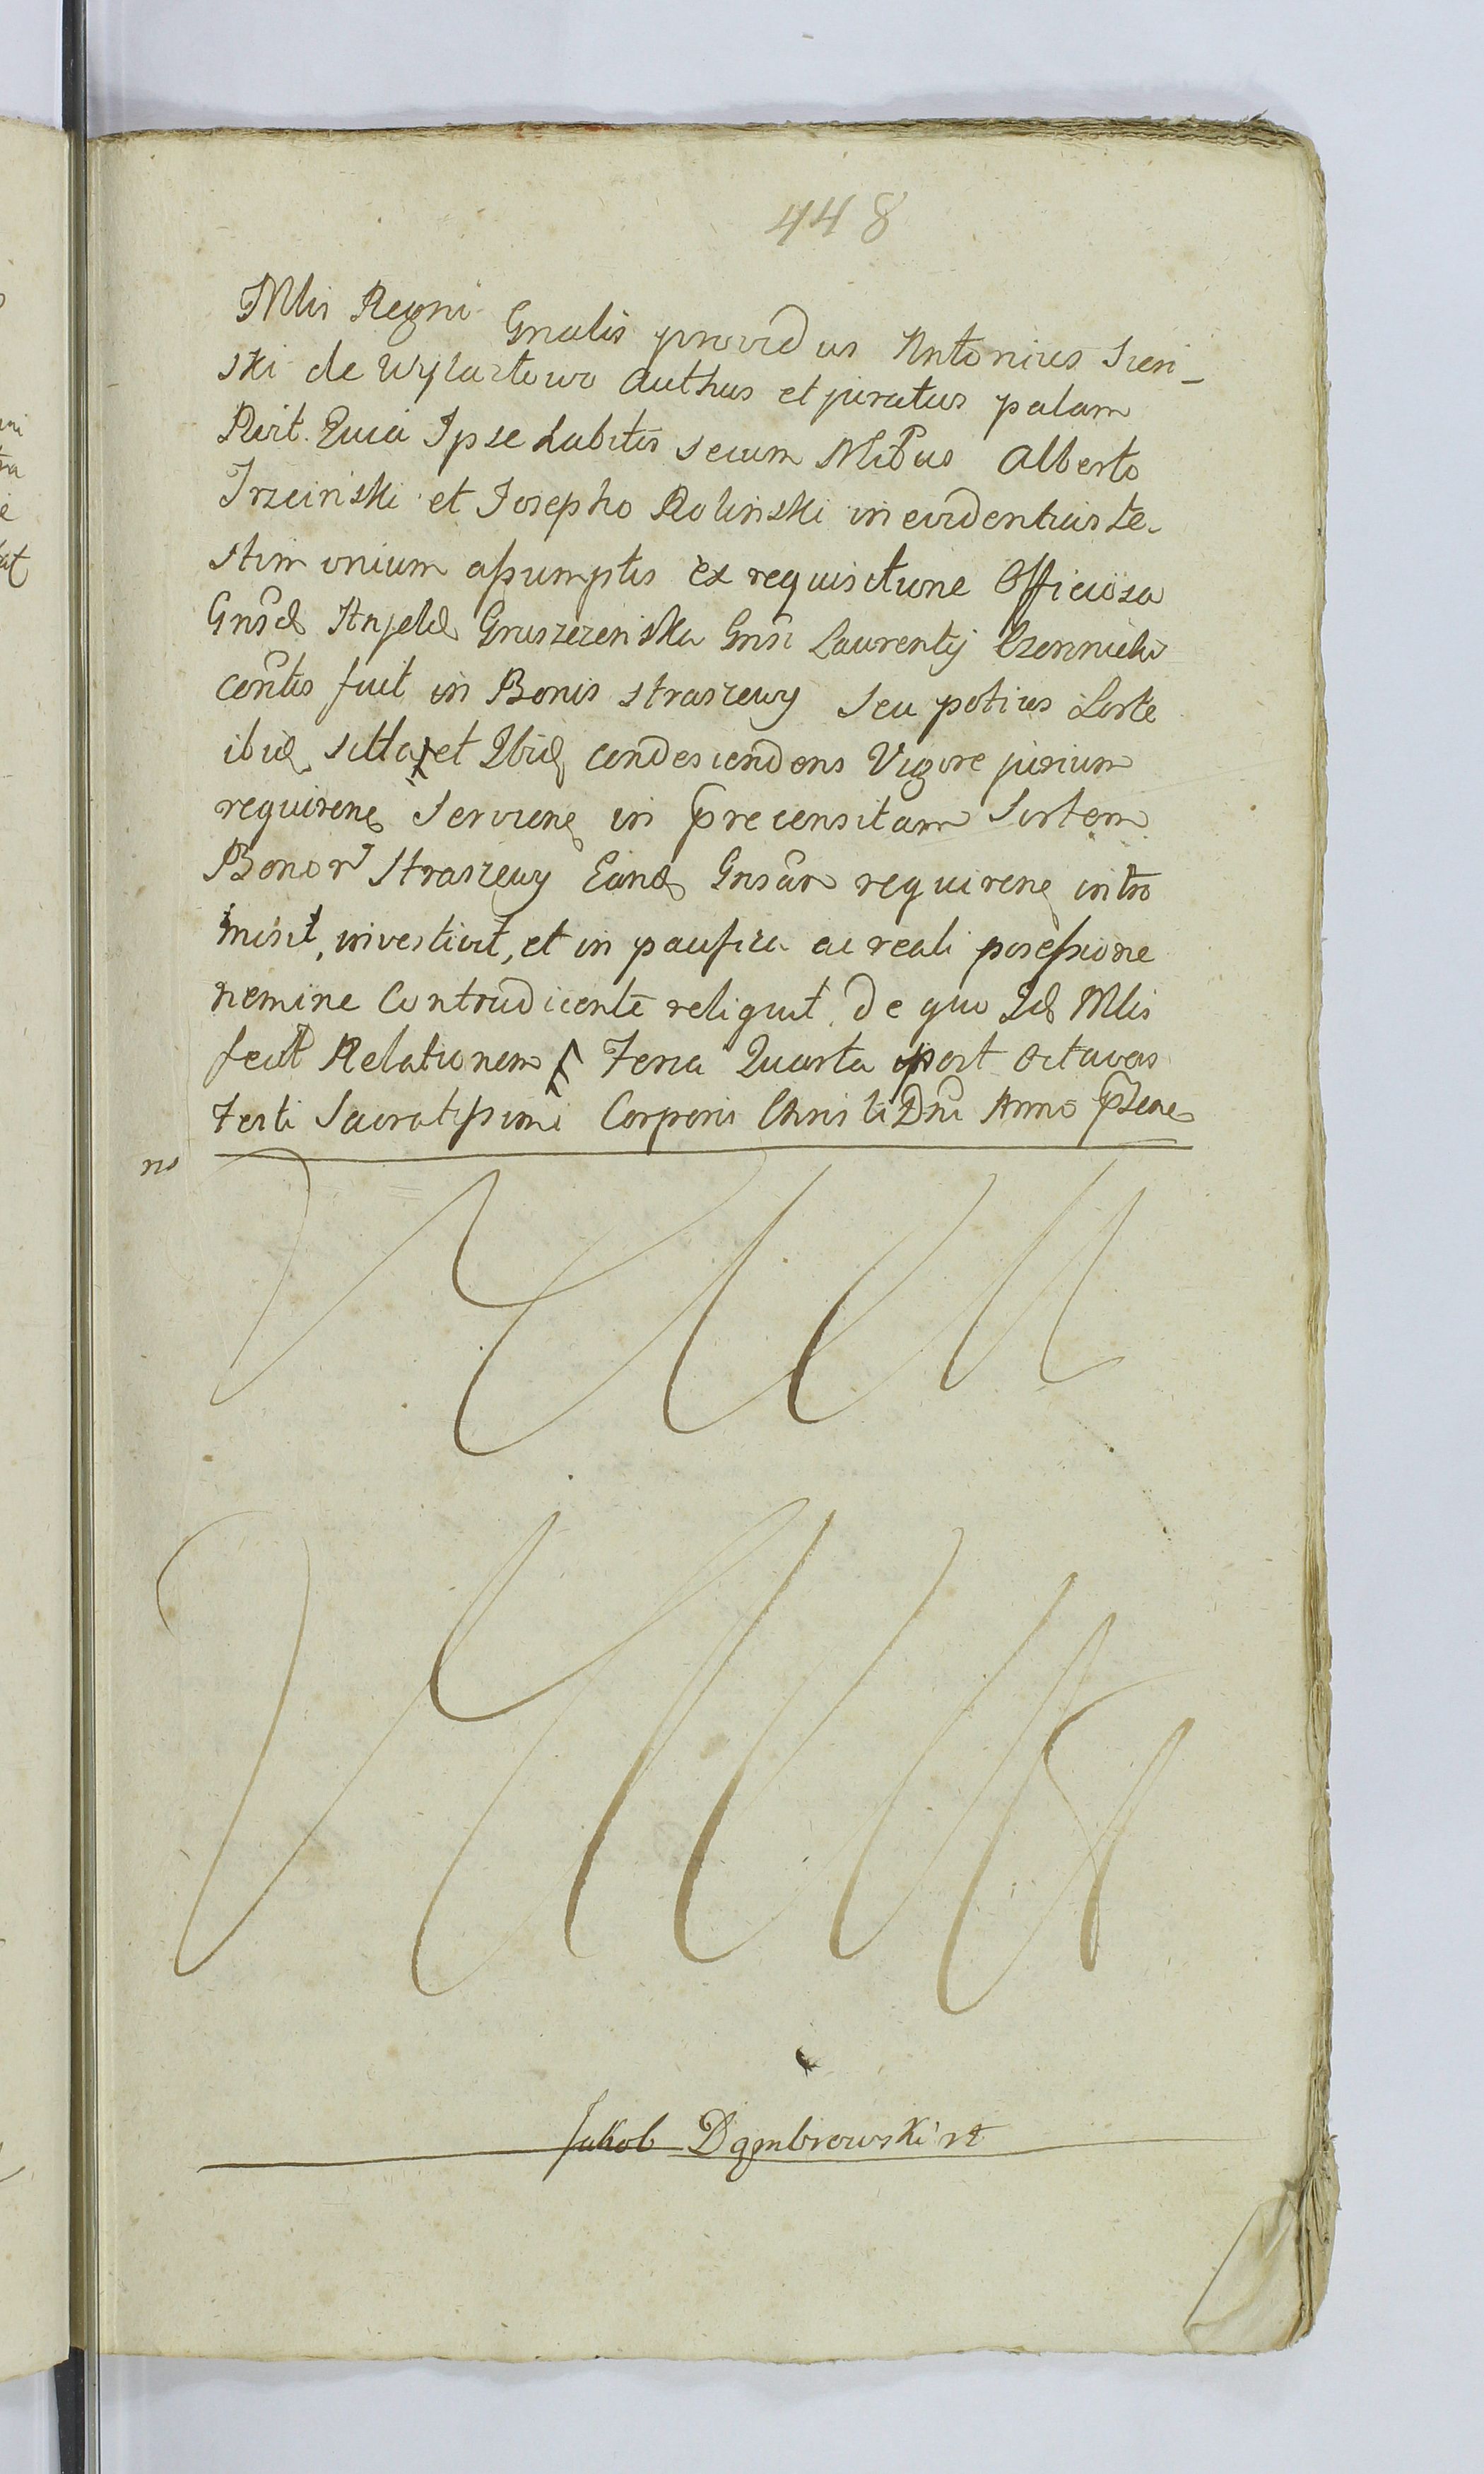 448
Mlis Regni Gnalis providus Antonius Sieri-
ski de Wylaztowo Authus et juratus palam
Rcit. Quia Ipse habitis secum Nlibus Alberto
Trzcinski et Josepho Rolinski in evidentius te-
stimonium assumptis ex requisitione Officiosa
Gnsæ Angelæ Gruszczenska Gnsi Laurentij
contis fuit in Bonis Straszewy seu potius Sorte
ibid. sitta et Ibid condescendens Vigore jurium
requirene Serviene in precensitam Sortem
Bonor Straszewy Eand Gnsam requirene intro
misit, investivit, et in paussica ac reali posessione
nemine Contradicente reliquit. de quo Id Mlis
fecit Relationem Feria Quarta post octavas
Festi Sacratissimi Corporis Christi Dni Anno Psene
no
Jakob Dąmbrowski rt